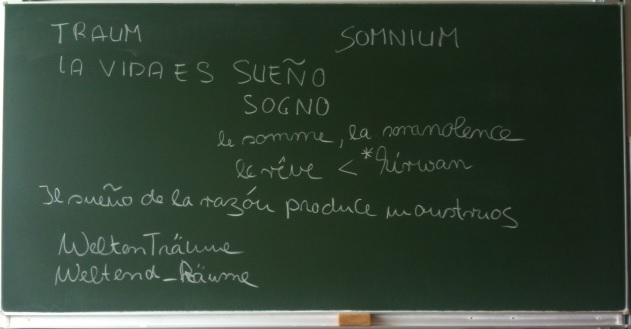 TRAUM SOMNIUM
LA VIDA ES SUEÑO
SOGNO
le somme, la somnolence
le rêve <
Il sueño de la razón produce monstruos
WeltenTräume
Weltend-Räume